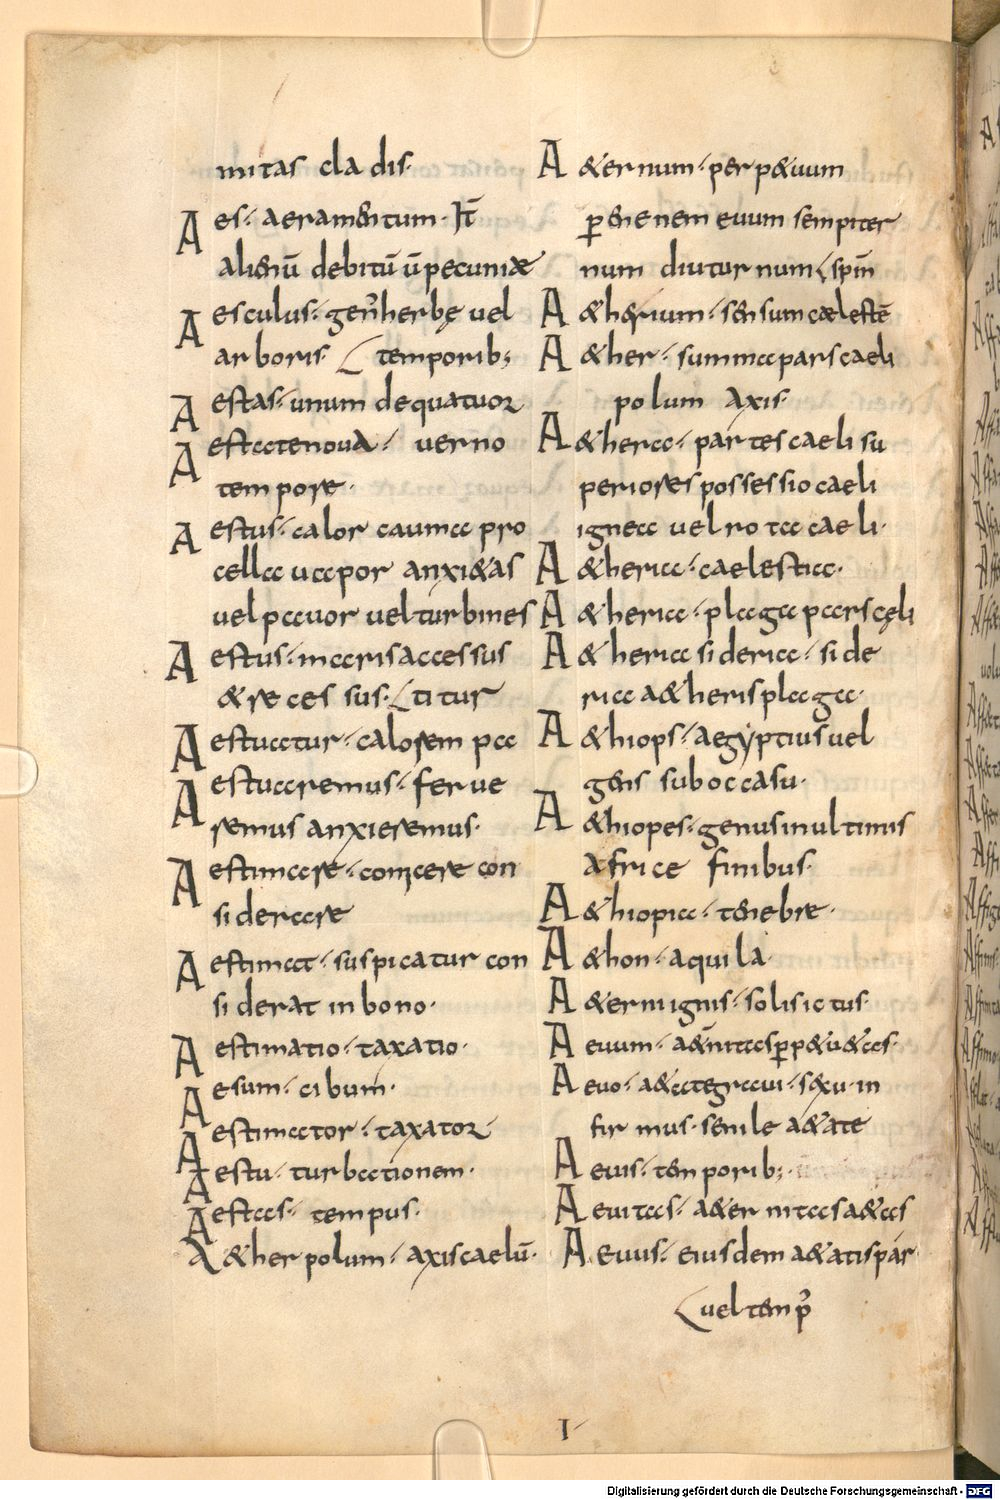 mitas cladis·
Aes· aeramentum· It̄
alienū debitū ū pecuniæ
Aesculus· gen̄ herbę vel
arboris· temporib;
Aestas· unum de quatuor
Aestate nova· verno
tempore·
Aestus· calor cauma pro
cella vapor anxi&as
vel pavor vel turbines
Aestus· maris accessus
& recessus· titur
Aestuatur· calorem pa
Aestuaremus· ferve
remus anxieremus·
Aestimare· conicere con
siderare
Aestimat· suspicatur con
siderat in bono·
Aestimatio· taxatio·
Aesum· cibum·
Aestimator· taxator
Aestu· turbationem·
Aestas· tempus·
A&her polum· axis caelū·
A&ernum· perp&uum
ꝑhenem evum sempiter
num diuturnum spin̄
A&herium· sensum cælestē
A&her· summa pars caeli
polum axis·
A&hera· partes caeli su
periores possessio caeli
ignea vel rota caeli·
A&heria· caelestia·
A&heria· plaga pars cęli
A&heria sideria· side
ria a&heris plaga·
A&hiops· aegyptius vel
gens sub occasu·
A&hiopes· genus in ultimis
africe finibus·
A&hiopia· tenebre·
A&hon· aquila·
A&erni ignis· solis ictus·
Aevum· a&nitas ꝑp&u&as·
Aevo· a&ate gravi· sexu in
firmus· senile a&ate
Aevis· temporib;·
Aevitas· a&ernitas a&as
Aevus· eiusdem a&atis par·
vel temp̄
I
Digitalisierung gefördert durch die Deutsche Forschungsgemeinschaft - DFG